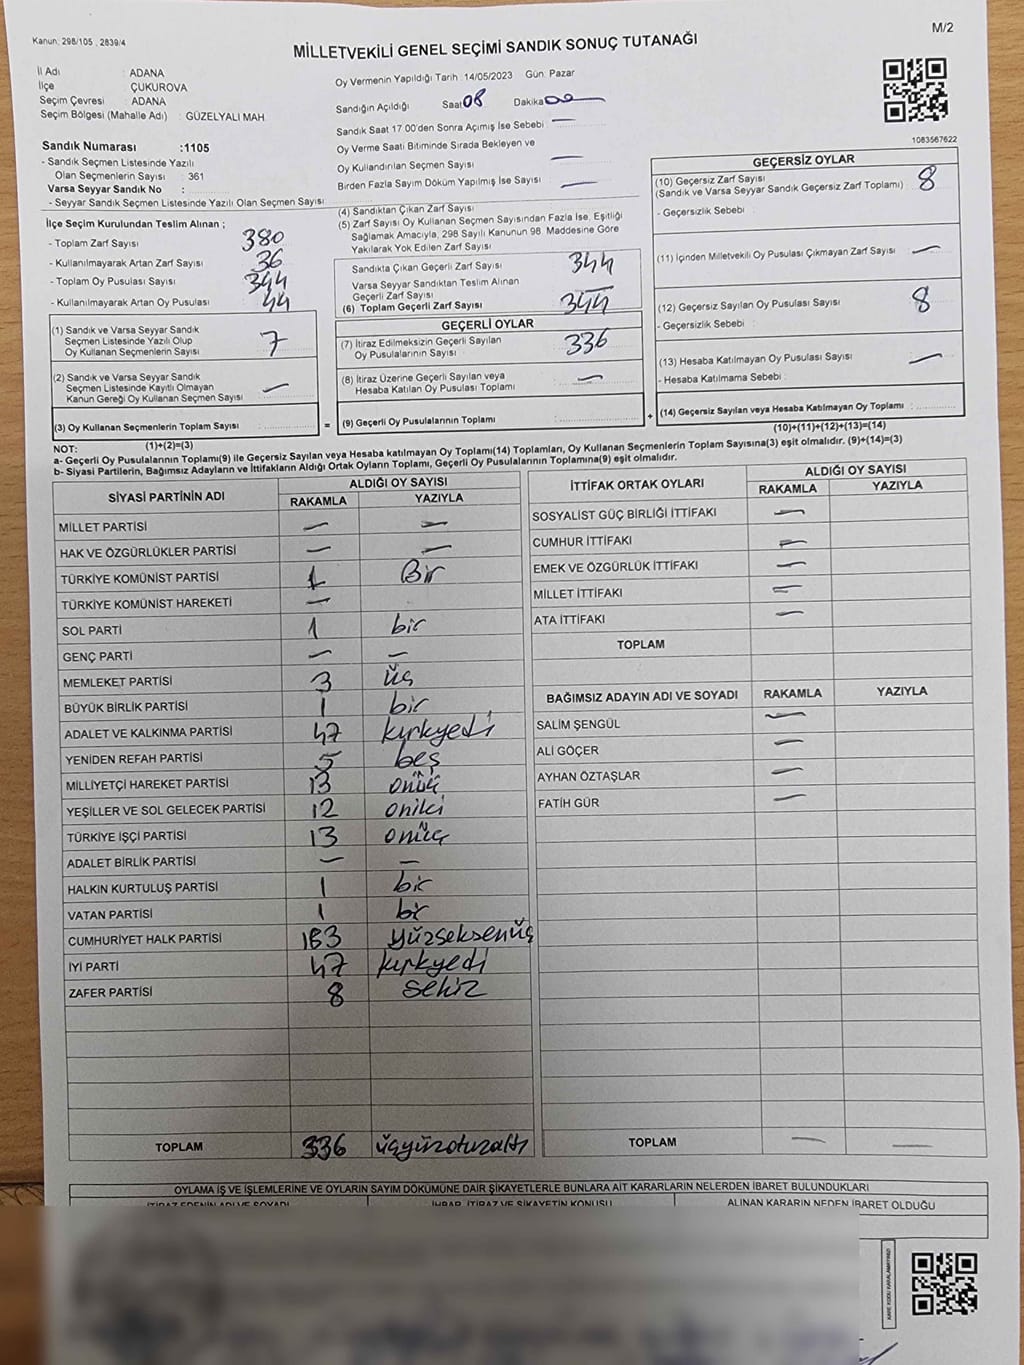 M/2
Kanun, 298/105 , 2839/4
MİLLETVEKİLİ GENEL SEÇİMİ SANDIK SONUÇ TUTANAĞI
İl Adı : ADANA
İlçe ÇUKUROVA
Seçim Çevresi : ADANA
Seçim Bölgesi (Mahalle Adı) : GÜZELYALI MAH.
Sandık Numarası :1105
- Sandık Seçmen Listesinde Yazılı
Olan Seçmenlerin Sayısı : 361
Varsa Seyyar Sandık No :
- Seyyar Sandık Seçmen Listesinde Yazılı Olan Seçmen Sayısı
Oy Vermenin Yapıldığı Tarih :14/05/2023 Gün: Pazar
Sandığın Açıldığı Saat 08 Dakika 00
Sandık Saat 17.00'den Sonra Açımış İse Sebebi : —
Oy Verme Saati Bitiminde Sırada Bekleyen ve
Oy Kullandırılan Seçmen Sayısı —
Birden Fazla Sayım Döküm Yapılmış İse Sayısı —
1083567622
İlçe Seçim Kurulundan Teslim Alınan ;
- Toplam Zarf Sayısı 380
- Kullanılmayarak Artan Zarf Sayısı 36
- Toplam Oy Pusulası Sayısı 344
- Kullanılmayarak Artan Oy Pusulası 44
(1) Sandık ve Varsa Seyyar Sandık
Seçmen Listesinde Yazılı Olup
Oy Kullanan Seçmenlerin Sayısı 7
(2) Sandık ve Varsa Seyyar Sandık
Seçmen Listesinde Kayıtlı Olmayan
Kanun Gereği Oy Kullanan Seçmen Sayısı —
(3) Oy Kullanan Seçmenlerin Toplam Sayısı :
(4) Sandıktan Çıkan Zarf Sayısı
(5) Zarf Sayısı Oy Kullanan Seçmen Sayısından Fazla İse, Eşitliği
Sağlamak Amacıyla, 298 Sayılı Kanunun 98. Maddesine Göre
Yakılarak Yok Edilen Zarf Sayısı
Sandıkta Çıkan Geçerli Zarf Sayısı 344
Varsa Seyyar Sandıktan Teslim Alınan
Geçerli Zarf Sayısı —
(6) Toplam Geçerli Zarf Sayısı 344
GEÇERLİ OYLAR
(7) İtiraz Edilmeksizin Geçerli Sayılan
Oy Pusulalarının Sayısı 336
(8) İtiraz Üzerine Geçerli Sayılan veya
Hesaba Katılan Oy Pusulası Toplamı —
= (9) Geçerli Oy Pusulalarının Toplamı :
GEÇERSİZ OYLAR
(10) Geçersiz Zarf Sayısı
(Sandık ve Varsa Seyyar Sandık Geçersiz Zarf Toplamı) 8
- Geçersizlik Sebebi :
(11) İçinden Milletvekili Oy Pusulası Çıkmayan Zarf Sayısı —
(12) Geçersiz Sayılan Oy Pusulası Sayısı 8
- Geçersizlik Sebebi
(13) Hesaba Katılmayan Oy Pusulası Sayısı —
- Hesaba Katılmama Sebebi :
+ (14) Geçersiz Sayılan veya Hesaba Katılmayan Oy Toplamı :
(10)+(11)+(12)+(13)=(14)
NOT: (1)+(2)=(3)
a- Geçerli Oy Pusulalarının Toplamı(9) ile Geçersiz Sayılan veya Hesaba katılmayan Oy Toplamı(14) Toplamları, Oy Kullanan Seçmenlerin Toplam Sayısına(3) eşit olmalıdır. (9)+(14)=(3)
b- Siyasi Partilerin, Bağımsız Adayların ve İttifakların Aldığı Ortak Oyların Toplamı, Geçerli Oy Pusulalarının Toplamına(9) eşit olmalıdır.
SİYASİ PARTİNİN ADI ALDIĞI OY SAYISI
RAKAMLA YAZIYLA
MİLLET PARTİSİ — —
HAK VE ÖZGÜRLÜKLER PARTİSİ — —
TÜRKİYE KOMÜNİST PARTİSİ 1 Bir
TÜRKİYE KOMÜNİST HAREKETİ —
SOL PARTİ 1 bir
GENÇ PARTİ — —
MEMLEKET PARTİSİ 3 üç
BÜYÜK BİRLİK PARTİSİ 1 bir
ADALET VE KALKINMA PARTİSİ 47 kırkyedi
YENİDEN REFAH PARTİSİ 5 beş
MİLLİYETÇİ HAREKET PARTİSİ 13 onüç
YEŞİLLER VE SOL GELECEK PARTİSİ 12 oniki
TÜRKİYE İŞÇİ PARTİSİ 13 onüç
ADALET BİRLİK PARTİSİ — —
HALKIN KURTULUŞ PARTİSİ 1 bir
VATAN PARTİSİ 1 bir
CUMHURİYET HALK PARTİSİ 183 yüzseksenüç
İYİ PARTİ 47 kırkyedi
ZAFER PARTİSİ 8 sekiz
TOPLAM 336 üçyüzotuzaltı
İTTİFAK ORTAK OYLARI ALDIĞI OY SAYISI
RAKAMLA YAZIYLA
SOSYALİST GÜÇ BİRLİĞİ İTTİFAKI —
CUMHUR İTTİFAKI —
EMEK VE ÖZGÜRLÜK İTTİFAKI —
MİLLET İTTİFAKI —
ATA İTTİFAKI —
TOPLAM
BAĞIMSIZ ADAYIN ADI VE SOYADI RAKAMLA YAZIYLA
SALİM ŞENGÜL —
ALİ GÖÇER —
AYHAN ÖZTAŞLAR —
FATİH GÜR —
TOPLAM — —
OYLAMA İŞ VE İŞLEMLERİNE VE OYLARIN SAYIM DÖKÜMÜNE DAİR ŞİKAYETLERLE BUNLARA AİT KARARLARIN NELERDEN İBARET BULUNDUKLARI
İTİRAZ EDENİN ADI VE SOYADI İHBAR, İTİRAZ VE ŞİKAYETİN KONUSU ALINAN KARARIN NEDEN İBARET OLDUĞU
KARE KODU KARALAMAYINIZ!